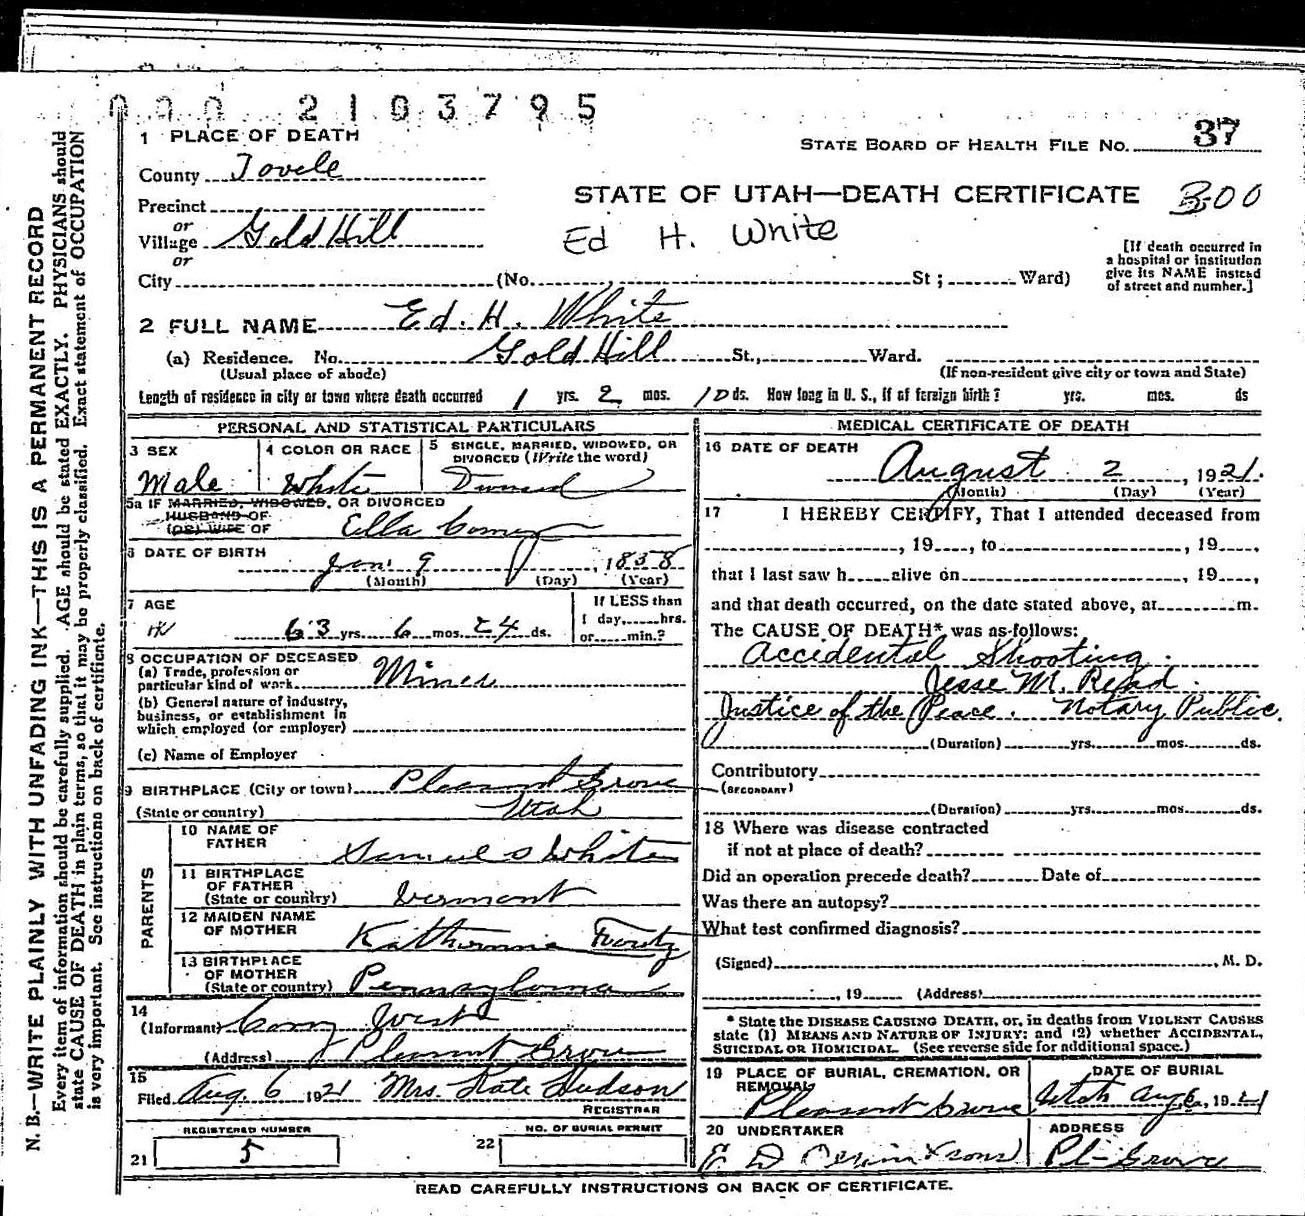 000 2103795
1 PLACE OF DEATH
STATE BOARD OF HEALTH FILE No. 37
County Tooele
STATE OF UTAH—DEATH CERTIFICATE 300
Precinct
or
Village Gold Hill
Ed H. White
or
[If death occurred in
a hospital or institution
give its NAME instead
of street and number.]
City (No. St; Ward)
2 FULL NAME Ed. H. White
(a) Residence. No. Gold Hill St., Ward.
(Usual place of abode) (If non-resident give city or town and State)
Length of residence in city or town where death occurred 1 yrs. 2 mos. 10 ds. How long in U. S., if of foreign birth? yrs. mos. ds
PERSONAL AND STATISTICAL PARTICULARS
3 SEX
Male
4 COLOR OR RACE
White
5 SINGLE, MARRIED, WIDOWED, OR
DIVORCED (Write the word)
5a IF MARRIED, WIDOWED, OR DIVORCED
HUSBAND OF
(OR) WIFE OF Ella
6 DATE OF BIRTH
Jan. 9, 1858
(Month) (Day) (Year)
7 AGE
63 yrs. 6 mos. 24 ds.
If LESS than
1 day, hrs.
or min.?
8 OCCUPATION OF DECEASED
(a) Trade, profession or
particular kind of work Miner
(b) General nature of industry,
business, or establishment in
which employed (or employer)
(c) Name of Employer
9 BIRTHPLACE (City or town) Pleasant Grove
(State or country) Utah
PARENTS
10 NAME OF
FATHER Samuel S White
11 BIRTHPLACE
OF FATHER
(State or country) Vermont
12 MAIDEN NAME
OF MOTHER Katherine
13 BIRTHPLACE
OF MOTHER
(State or country) Pennsylvania
14
(Informant)
(Address) Pleasant Grove
15
Filed Aug. 6 1921 Mrs. Kate Hudson
REGISTRAR
REGISTERED NUMBER
21 5
NO. OF BURIAL PERMIT
22
MEDICAL CERTIFICATE OF DEATH
16 DATE OF DEATH
August 2, 1921.
(Month) (Day) (Year)
17 I HEREBY CERTIFY, That I attended deceased from
, 19 , to , 19 ,
that I last saw h alive on , 19 ,
and that death occurred, on the date stated above, at m.
The CAUSE OF DEATH* was as follows:
Accidental Shooting.
Jesse M. Read.
Justice of the Peace. Notary Public.
(Duration) yrs. mos. ds.
Contributory
(SECONDARY)
(Duration) yrs. mos. ds.
18 Where was disease contracted
if not at place of death?
Did an operation precede death? Date of
Was there an autopsy?
What test confirmed diagnosis?
(Signed) , M. D.
, 19 (Address)
* State the DISEASE CAUSING DEATH, or, in deaths from VIOLENT CAUSES
state (1) MEANS AND NATURE OF INJURY; and (2) whether ACCIDENTAL,
SUICIDAL OR HOMICIDAL. (See reverse side for additional space.)
19 PLACE OF BURIAL, CREMATION, OR
REMOVAL
Pleasant Grove Utah
DATE OF BURIAL
Aug 6, 1921
20 UNDERTAKER
E D & Sons
ADDRESS
Pl- Grove
READ CAREFULLY INSTRUCTIONS ON BACK OF CERTIFICATE.
N. B.—WRITE PLAINLY WITH UNFADING INK—THIS IS A PERMANENT RECORD
Every item of information should be carefully supplied. AGE should be stated EXACTLY. PHYSICIANS should
state CAUSE OF DEATH in plain terms, so that it may be properly classified. Exact statement of OCCUPATION
is very important. See instructions on back of certificate.